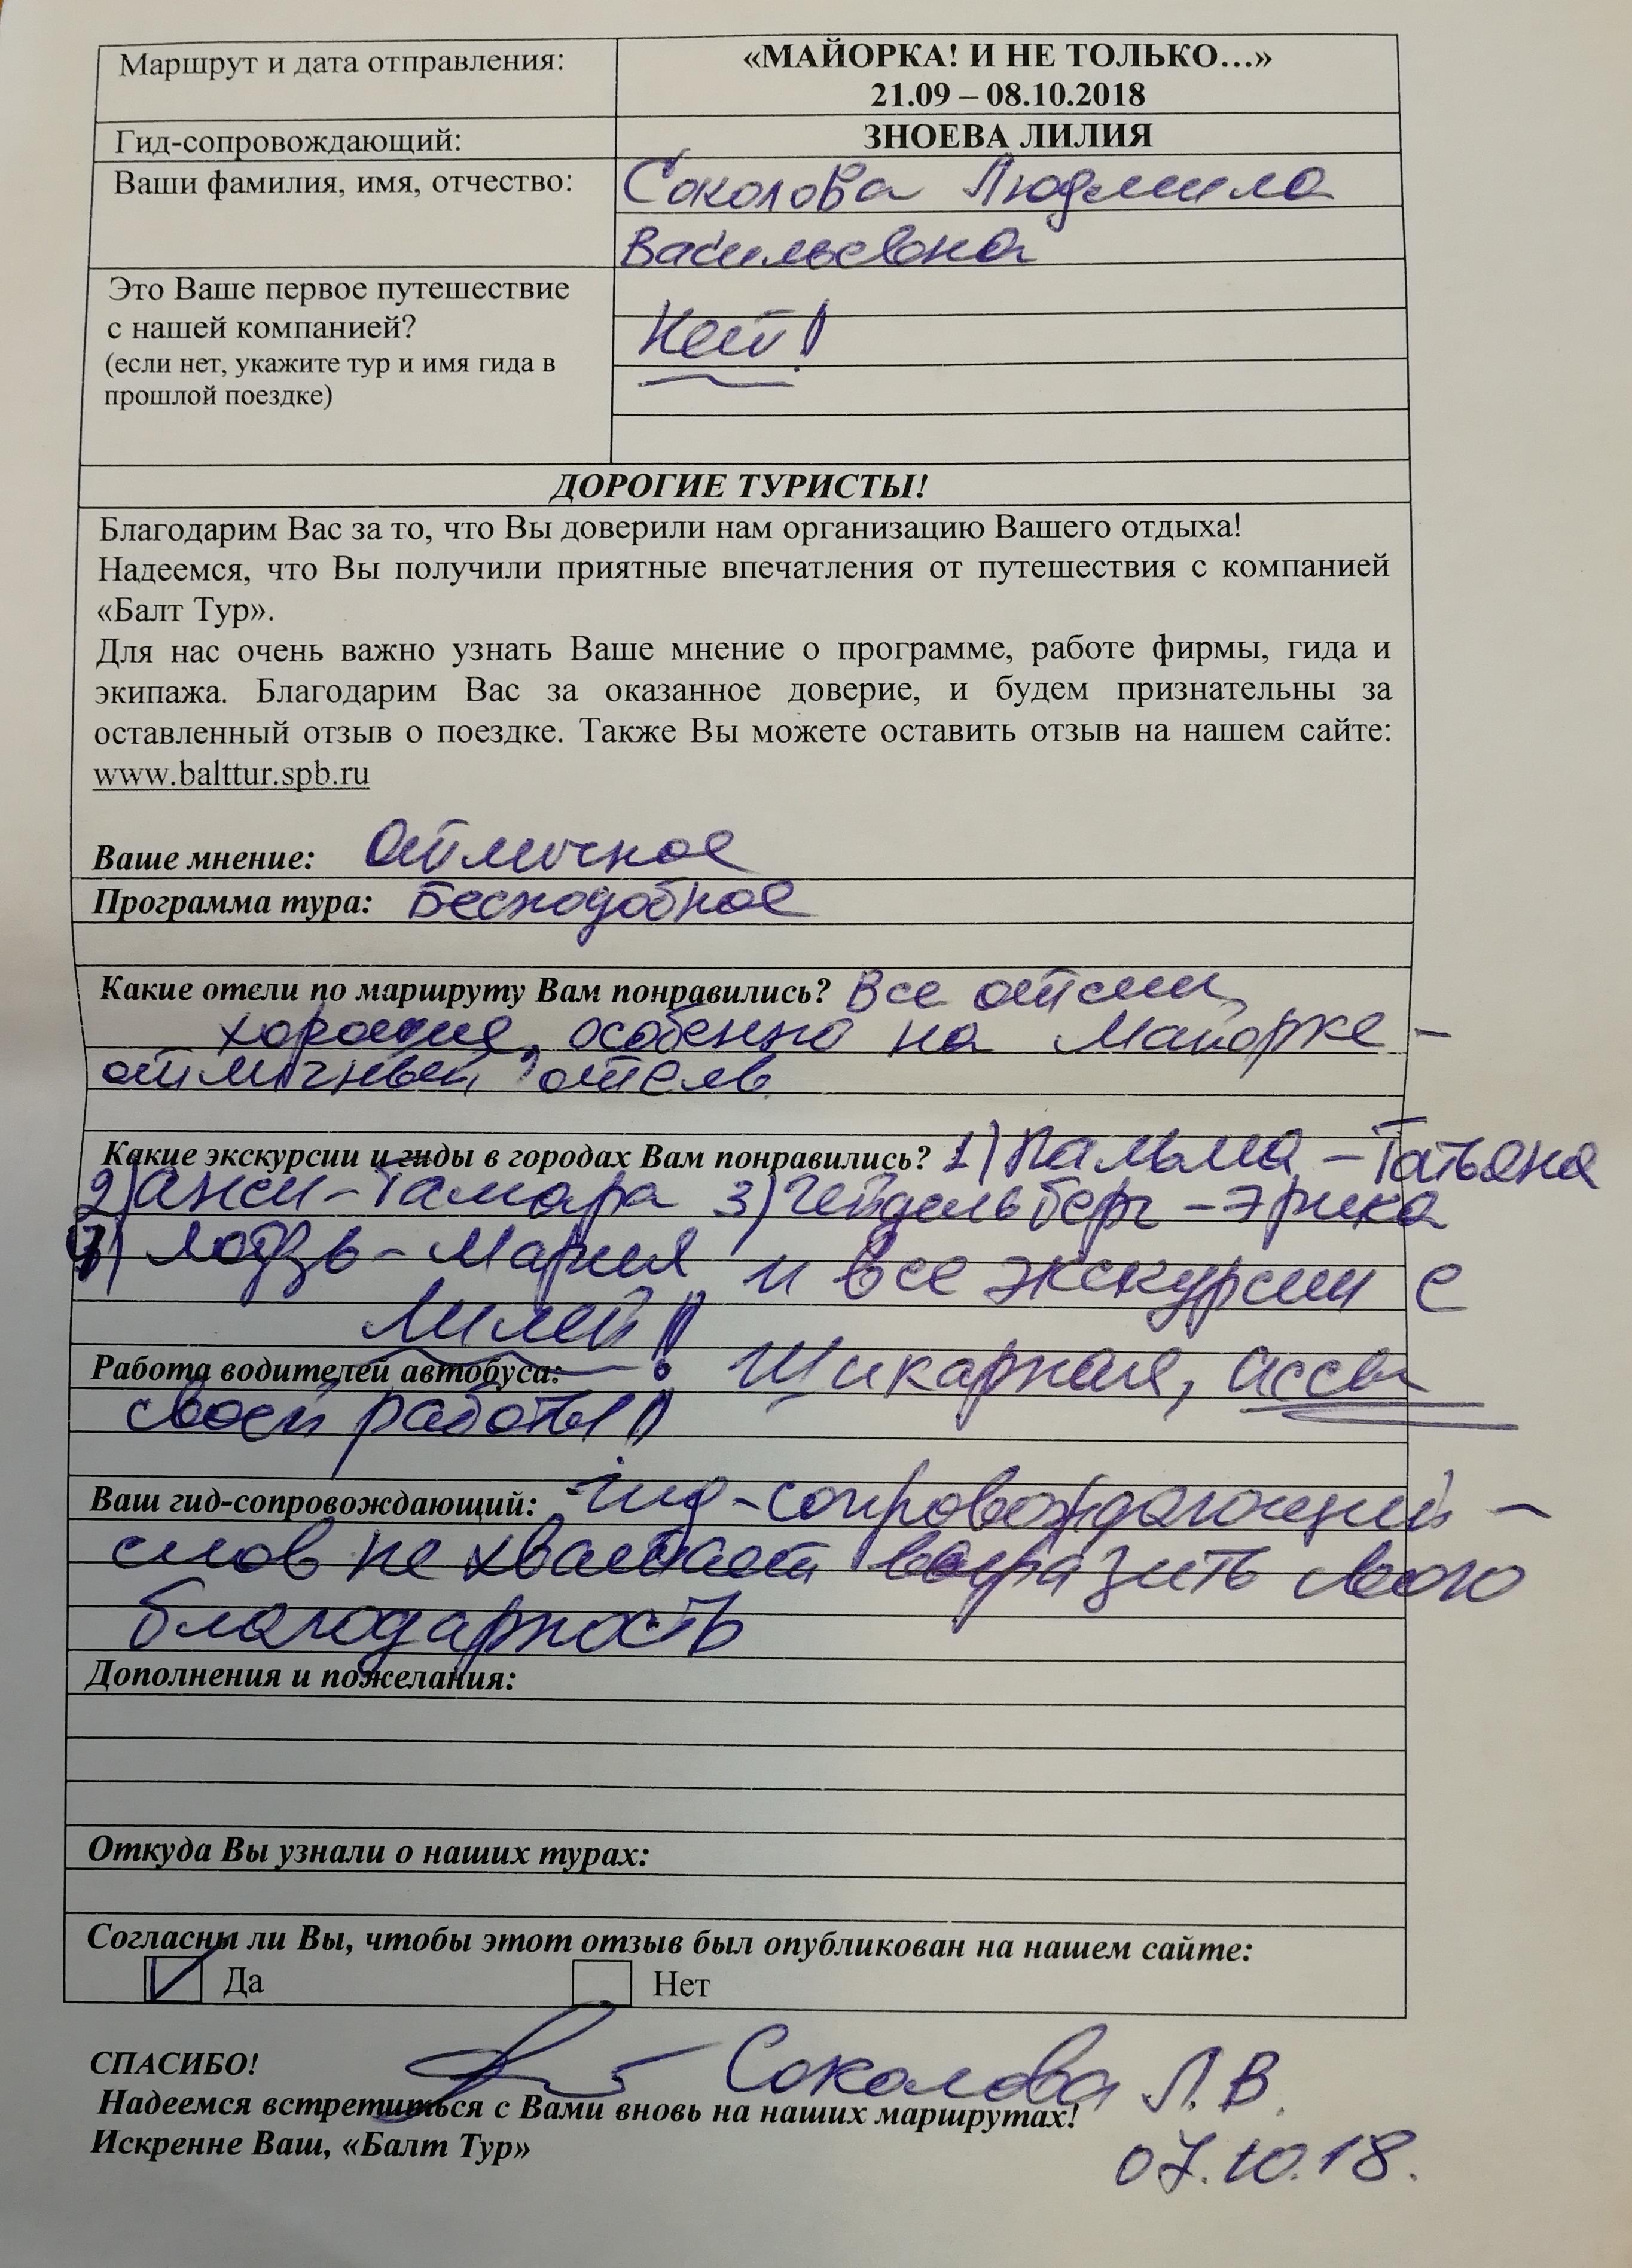 Маршрут и дата отправления:
«МАЙОРКА! И НЕ ТОЛЬКО…»
21.09 – 08.10.2018
Гид-сопровождающий:
ЗНОЕВА ЛИЛИЯ
Ваши фамилия, имя, отчество:
Соколова Людмила
Васильевна
Это Ваше первое путешествие
с нашей компанией?
(если нет, укажите тур и имя гида в
прошлой поездке)
Нет!
ДОРОГИЕ ТУРИСТЫ!
Благодарим Вас за то, что Вы доверили нам организацию Вашего отдыха!
Надеемся, что Вы получили приятные впечатления от путешествия с компанией
«Балт Тур».
Для нас очень важно узнать Ваше мнение о программе, работе фирмы, гида и
экипажа. Благодарим Вас за оказанное доверие, и будем признательны за
оставленный отзыв о поездке. Также Вы можете оставить отзыв на нашем сайте:
www.balttur.spb.ru
Ваше мнение: Отличное
Программа тура: Бесподобное
Какие отели по маршруту Вам понравились? Все отели
хорошие, особенно на Майорке –
отличный отель
Какие экскурсии и гиды в городах Вам понравились? 1) Пальма – Татьяна
2) Анси – Тамара 3) Гейдельберг – Эрика
4) Лодзь – Мария и все экскурсии с
Лилей!!
Работа водителей автобуса: Шикарная, ассы
своей работы!!
Ваш гид-сопровождающий: Гид-сопровождающий –
слов не хватает выразить свою
благодарность
Дополнения и пожелания:
Откуда Вы узнали о наших турах:
Согласны ли Вы, чтобы этот отзыв был опубликован на нашем сайте:
Да Нет
СПАСИБО!
Соколова Л.В.
Надеемся встретиться с Вами вновь на наших маршрутах!
Искренне Ваш, «Балт Тур»
07.10.18.